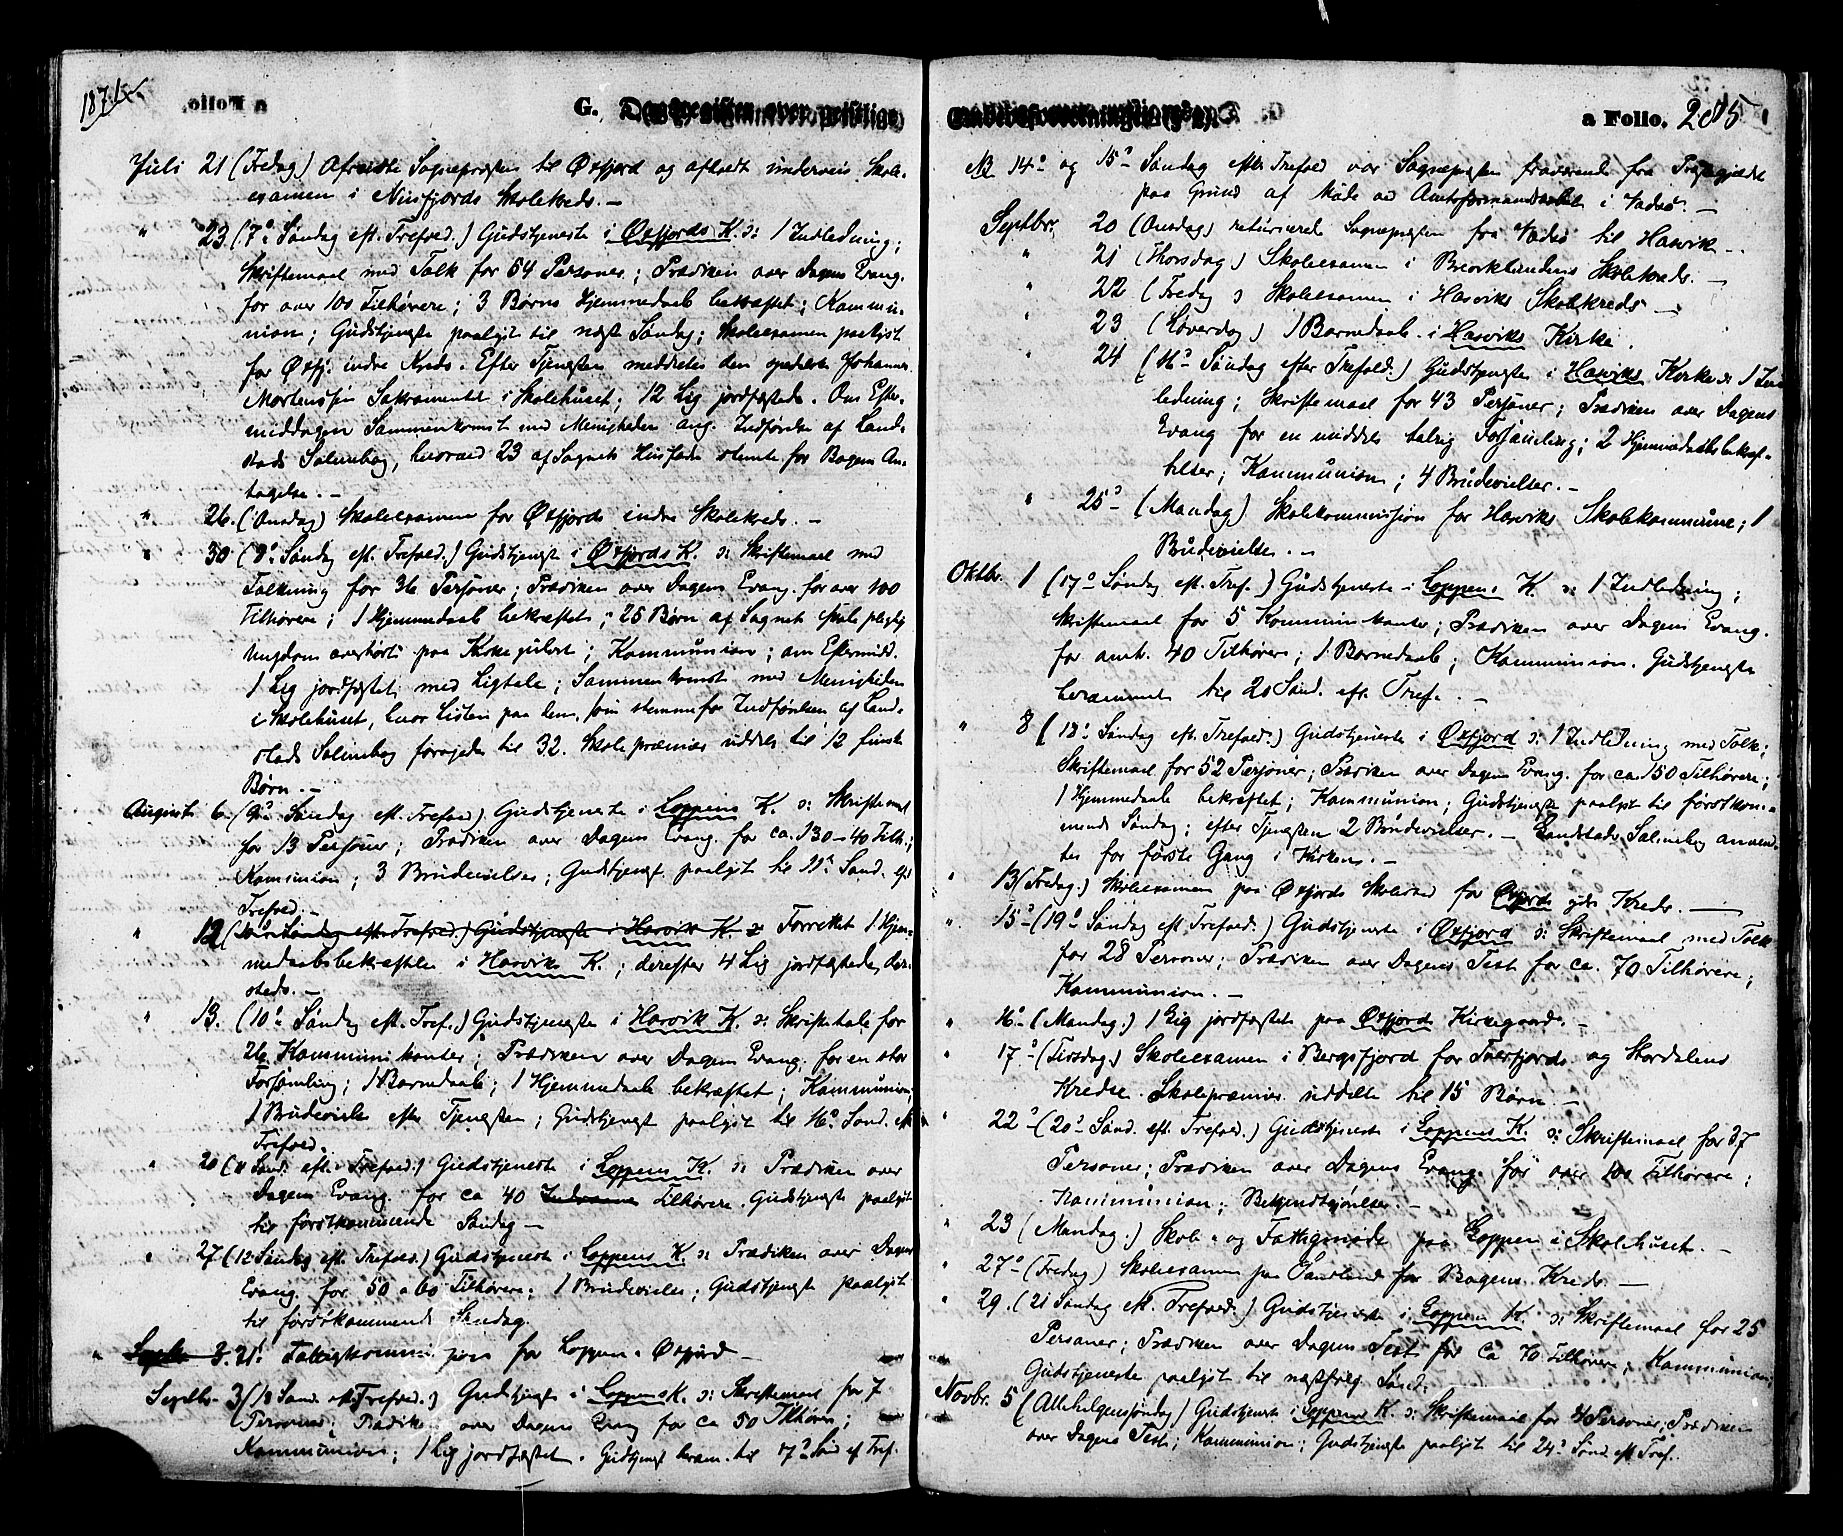 1871
G. Dagregister over geistlige
Juli 21 (Fredag) Afreiste Sognepresten til Øxfjord og afholdt underveis Skole-
examen i Nusfjords Skolekreds. –
" 23 (7de Søndag eft. Trefold.) Gudstjeneste i Øxfjords K. ɔ: 1 Indledning;
Skriftemaal med Tolk for 54 Personer; Prædiken over Dagens Evang.
for over 100 Tilhørere; 3 Børns Hjemmedaab bekræftet; Kommu-
nion; Gudstjeneste paalyst til næste Søndag; Skoleexamen paalyst
for Øxfj. indre Kreds. Efter Tjenesten meddeltes den Johannes
Mortensen Sakramentet i Skolehuset; 12 Lig jordfæstede. Om Efter-
middagen Sammenkomst med Menigheden ang. Indførelse af Land-
stads Salmebog, hvorved 23 af Sognets Husfædre stemte for Bogens An-
tagelse. –
" 26. (Onsdag) Skoleexamen for Øxfjords indre Skolekreds. –
" 30 (8de Søndag eft. Trefold.) Gudstjeneste i Øxfjords K. ɔ: Skriftemaal med
Tolkning for 36 Personer; Prædiken over Dagens Evang. for over 100
Tilhørere; 1 Hjemmedaab bekræftet; 25 Børn af Sognets skolepligtige
Ungdom overhørt paa Kirkegulvet; Kommunion; om Eftermidd.
1 Lig jordfæstet med Ligtale; Sammenkomst med Menigheden
i Skolehuset, hvor Listen paa dem, som stemme for Indførelsen af Land-
stads Salmebog forøgedes til 32. Skolepræmier uddelt til 12 finske
Børn. –
August 6. (9de Søndag eft. Trefold) Gudstjeneste i Loppens K. ɔ: Skriftemaal
for 13 Personer; Prædiken over Dagens Evang. for ca. 130-40 Tilh.;
Kommunion; 3 Brudevielser; Gudstjenest paalyst til 11te Sønd. eft
Trefold. –
" 12 (Søndag eft. Trefold.) Gudstjeneste i Hasvik K. ɔ: Forrettet 1 Hjem-
medaabsbekræftelse i Hasviks K.; derefter 4 Lig jordfæstede der-
steds. –
" 13. (10de Søndag eft. Tref.) Gudstjeneste i Hasvik K. ɔ: Skriftetale for
26 Kommunikanter; Prædiken over Dagens Evang. for en stor
Forsamling; 1 Barnedaab; 1 Hjemmedaab bekræftet; Kommunion;
1 Brudevielse efter Tjenesten; Gudstjenest paalyst til 16de Sønd. eft
Trefold.
" 20 (11 Sønd. eft. Trefold.) Gudstjeneste i Loppens K. ɔ: Prædiken over
Dagens Evang. for ca 40 Tilhørere. Gudstjeneste paalyst
til førstkommende Søndag –
" 27 (12 Søndag eft. Trefold.) Gudstjeneste i Loppens K. ɔ: Prædiken over Dagens
Evang. for 50 a 60 Tilhørere; 1 Brudevielse; Gudstjeneste paalyst
til førstkommende Søndag.
" Septbr 3. 21. Fattigkommission for Loppen-Øxfjord –
Septbr. 3 (13 Sønd. eft Trefold.) Gudstjeneste i Loppens K. ɔ: Skriftemaal for 7
Personer; Prædiken over Dagens Evang for ca 50 Tilhørere;
Kommunion; 1 Lig jordfæstet. Gudstjenest beram. til 17de Sønd ef Tref.
a Folio. 285
NB 14de og 15de Søndag efter Trefold var Sognepresten fraværende fra Præstegjældet
paa Grund af Møde ved Amtsformandskabet i Vadsø. –
Septbr. 20 (Onsdag) returnerede Sognepresten fra Vadsø til Hasvik –
" 21 (Thorsdag) Skoleexamen i Breviklundens Skolekreds. –
" 22 (Fredag) Skoleexamen i Hasviks Skolekreds –
" 23 (Løverdag) 1 Barnedaab i Hasviks Kirke.
" 24 (16de Søndag efter Trefold.) Gudstjeneste i Hasviks Kirke ɔ: 1 Ind-
ledning; Skriftemaal for 43 Personer; Prædiken over Dagens
Evang for en middels talrig Forsamling; 2 Hjemmedaabsbekræf-
telser; Kommunion; 4 Brudevielser. –
" 25de (Mandag) Skolekommission for Hasviks Skolekommune; 1
Brudevielse. –
Oktbr. 1 (17de Søndag eft. Tref.) Gudstjeneste i Loppens K. ɔ: 1 Indledning;
Skriftemaal for 5 Kommunikanter; Prædiken over Dagens Evang.
for omtr. 40 Tilhørere; 1 Barnedaab; Kommunion. Gudstjeneste
berammet til 20 Sønd. eft. Tref. –
" 8 (18de Søndag eft. Trefold.) Gudstjeneste i Øxfjord ɔ: 1 Indledning med Tolk;
Skriftemaal for 52 Personer; Prædiken over Dagens Evang. for ca. 150 Tilhørere;
1 Hjemmedaab bekræftet; Kommunion; Gudstjeneste paalyst til førstkom-
mende Søndag; efter Tjenesten 2 Brudevielser. – Landstads Salmebog anvend-
tes for første Gang i Kirken. –
" 13 (Fredag.) Skoleexamen paa Øxfjords Skolested for Øxfjords ydre Kreds. –
" 15de (19de Søndag eft. Trefold.) Gudstjeneste i Øxfjord ɔ: Skriftemaal med Tolk
for 28 Personer; Prædiken over Dagens Text for ca. 70 Tilhørere;
Kommunion. –
" 16de (Mandag.) 1 Lig jordfæstet paa Øxfjords Kirkegaard. –
" 17de (Tirsdag) Skoleexamen i Bergsfjord for Tverfjords og Stordalens
Kredse. Skolepræmier uddelte til 15 Børn –
" 22de (20de Sønd. eft. Trefold.) Gudstjeneste i Loppens K. ɔ: Skriftemaal for 37
Personer; Prædiken over Dagens Evang. for over 100 Tilhørere;
Kommunion; Bekjendtgjørelser. –
" 23 (Mandag.) Skole- og Fattigmøde paa Loppen i Skolehuset. –
" 27de (Fredag) Skoleexamen paa Sandland for Bogens Kreds. –
" 29. (21 Søndag eft. Trefold.) Gudstjeneste i Loppens K. ɔ: Skriftemaal for 25
Personer; Prædiken over Dagens Text for ca 70 Tilhørere; Kommunion;
Gudstjeneste paalyst til næstfølg. Sønd.
Novbr. 5 (Allehelgensøndag) Gudstjeneste i Loppens K. ɔ: Skriftemaal for 4 Personer; Prædiken
over Dagens Text; Kommunion; Gudstjeneste paalyst til 24de Sønd. eft Tref.